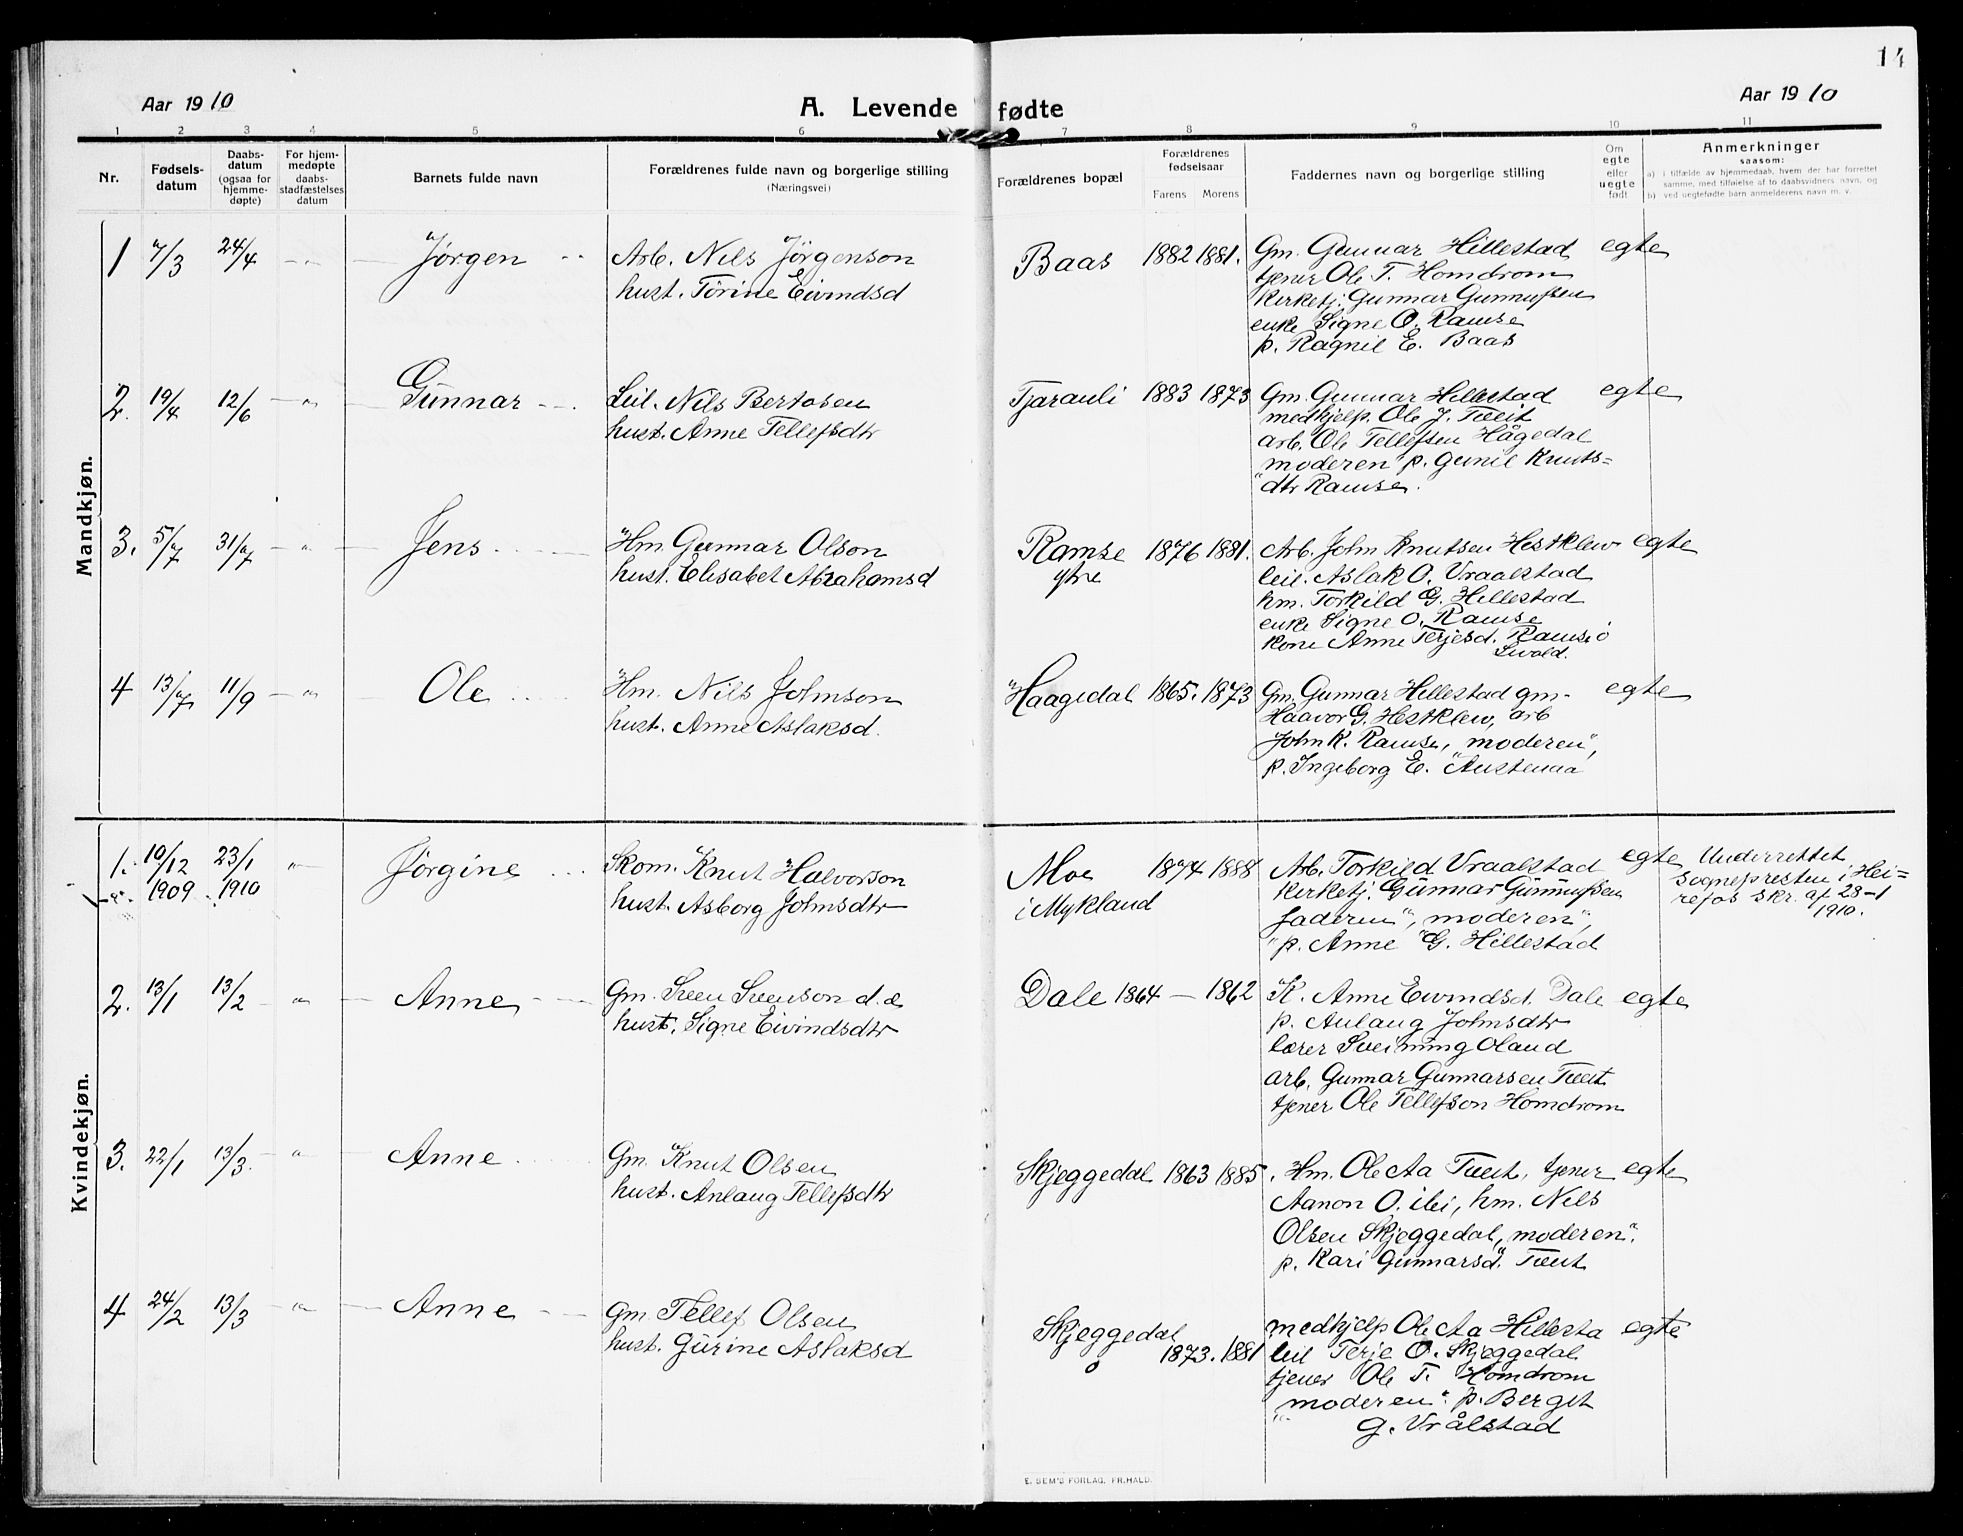 14
Aar 1910
A. Levende fødte
Aar 1910
1 2 3 4 5 6 7 8 9 10 11
Nr.
Fødsels-
datum
Daabs-
datum
(ogsaa for
hjemme-
døpte)
For hjem-
medøpte
daabs-
stadfæstelses
datum
Barnets fulde navn
Forældrenes fulde navn og borgerlige stilling
(Næringsvei)
Forældrenes bopæl
Forældrenes
fødselsaar
Farens Morens
Faddernes navn og borgerlige stilling
Om
egte
eller
uegte
født
Anmerkninger
saasom:
a) i tilfælde av hjemmedaab, hvem der har forrettet
samme, med tilføielse af to daabsvidners navn, og
b) ved uegtefødte barn anmelderens navn m. v.
Mandkjøn.
1 7/3 24/4 - " - Jørgen
Arb. Nils Jørgenson
hust. Torine Eivindsd
Baas 1882 1881.
Gm. Gunnar Hillestad
tjener Ole T. Homdrom
Kirketj. Gunnar Gunnufsen
enke Signe O. Ramse
p. Ragnil E. Baas
egte
2. 19/4 12/6 - " - Gunnar
Leil. Nils Bertosen
hust. Anne Tellefsdtr
Tjarauli 1883 1873
Gm. Gunnar Hillestad
medhjelp. Ole J. Tveit
arb. Ole Tellefsen Hågedal
"moderen" p. Gunil Knuts=
dtr Ramse.
egte
3. 5/7 31/7 - " - Jens
Hm. Gunnar Olson
hust. Elisabet Abrahamsd
Ramse
ytre
1876 1881.
Arb. John Knutsen Hestklev
leil. Aslak O. Vraalstad
hm. Torkild G. Hillestad
enke Signe O. Ramse
kone Anne Terjesd. Ramse
egte
4 13/7 11/9 - " - Ole
Hm. Nils Johnson
hust. Anne Aslaksd.
Haagedal 1865. 1873
Gm. Gunnar Hillestad gm.
Haavor G. Hestklev, arb
John K. Ramse, "moderen",
p. Ingeborg E. Austenaa
egte
Kvindekjøn.
1. 10/12 1909 23/1 1910 " Jørgine
Skom. Knut Halvorson
hust. Asborg Johnsdtr
Moe
i Mykland
1874 1888
Arb. Torkild Vraalstad
Kirketj. Gunnar Gunnufsen
"faderen", "moderen",
p. Anne G. Hillestad
egte
Underrettet
sognepresten i Hei=
refos skr. af 28-1
1910.
2. 13/1 13/2 - " - Anne
Gm. Sven Svenson d. æ
hust. Signe Eivindsdtr
Dale 1864 - 1862
K. Anne Eivindsd. Dale
p. Anlaug Johnsdtr
lærer Sveinung Oland
arb. Gunnar Gunnarsen Tveit
tjener Ole Tellefson Homdrom
egte
3. 22/1 13/3 - " - Anne
Gm. Knut Olsen
hust. Anlaug Tellefsdtr
Skjeggedal 1863 1885
Hm. Ole Aa Tveit, tjener
Aanon O. , hm. Nils
Olsen Skjeggedal, "moderen".
p. Kari Gunnarsd. Tveit
egte
4 24/2 13/3 - " - Anne
Gm. Tellef Olsen
hust. Gurine Aslaksd
Skjeggedal
1873. 1881
medhjelp Ole Aa Hillesta
leil Terje O. Skjeggedal
tjener Ole T. Homdrom
"moderen". p. Berget
G. Vrålstad
egte
E. SEM'S FORLAG, FR.HALD.